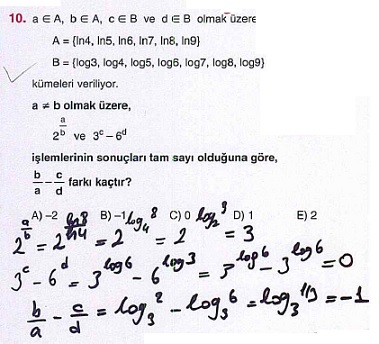 10. a ∈ A, b ∈ A, c ∈ B ve d ∈ B olmak üzere
A = {ln4, ln5, ln6, ln7, ln8, ln9}
B = {log3, log4, log5, log6, log7, log8, log9}
kümeleri veriliyor.
a ≠ b olmak üzere,
2^(a/b) ve 3^c – 6^d
işlemlerinin sonuçları tam sayı olduğuna göre,
b/a – c/d farkı kaçtır?
A) –2 B) –1 C) 0 D) 1 E) 2
2^(a/b) = 2^(ln8/ln4) = 2^(log_4 8) = 2^(log_2 3) = 3
3^c – 6^d = 3^(log6) – 6^(log3) = 3^(log6) – 3^(log6) = 0
b/a – c/d = log_3 2 – log_3 6 = log_3 1/3 = –1